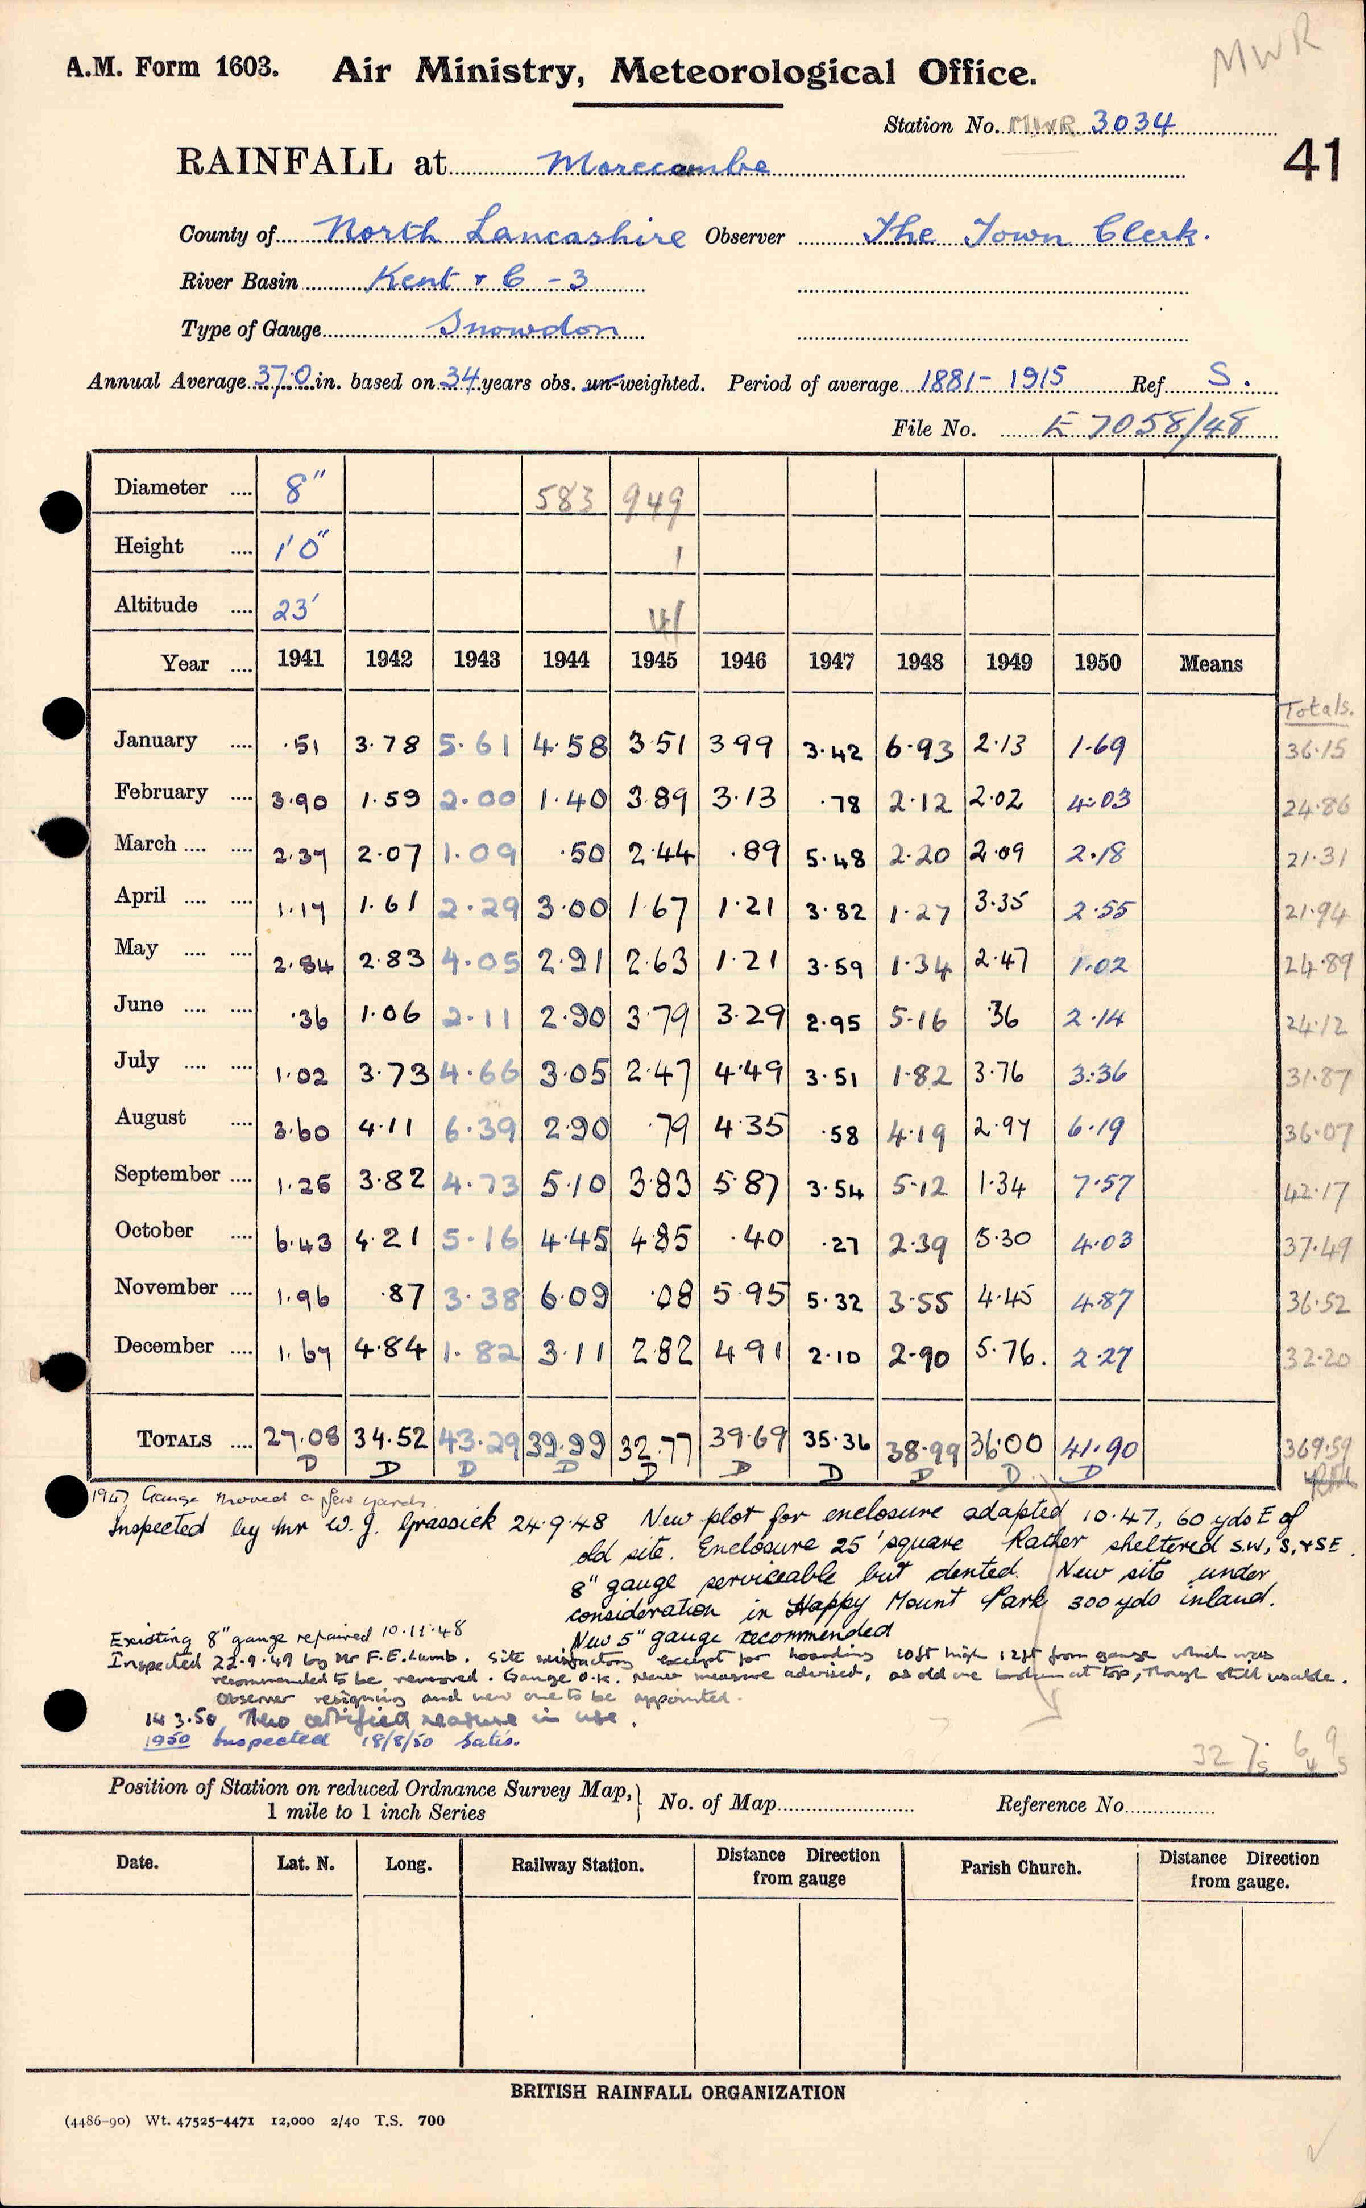 MWR
A.M. Form 1603. Air Ministry, Meteorological Office.
Station No. MWR 3034
41
RAINFALL at Morecambe
County of North Lancashire Observer The Town Clerk.
River Basin Kent & C - 3
Type of Gauge Snowdon
Annual Average 37.0 in. based on 34 years obs. un-weighted. Period of average 1881 - 1915 Ref S.
File No. E 7058/48
Diameter .... 8" 583 949
Height .... 1'0" 1
Altitude .... 23'
Year .... 1941 1942 1943 1944 1945 1946 1947 1948 1949 1950 Means
Totals.
January .... .51 3.78 5.61 4.58 3.51 3.99 3.42 6.93 2.13 1.69 36.15
February .... 3.90 1.59 2.00 1.40 3.89 3.13 .78 2.12 2.02 4.03 24.86
March .... .... 2.37 2.07 1.09 .50 2.44 .89 5.48 2.20 2.09 2.18 21.31
April .... .... 1.17 1.61 2.29 3.00 1.67 1.21 3.82 1.27 3.35 2.55 21.94
May .... .... 2.84 2.83 4.05 2.91 2.63 1.21 3.59 1.34 2.47 1.02 24.89
June .... .... .36 1.06 2.11 2.90 3.79 3.29 2.95 5.16 .36 2.14 24.12
July .... .... 1.02 3.73 4.66 3.05 2.47 4.49 3.51 1.82 3.76 3.36 31.87
August .... 3.60 4.11 6.39 2.90 .79 4.35 .58 4.19 2.97 6.19 36.07
September .... 1.25 3.82 4.73 5.10 3.83 5.87 3.54 5.12 1.34 7.57 42.17
October .... 6.43 4.21 5.16 4.45 4.85 .40 .27 2.39 5.30 4.03 37.49
November .... 1.96 .87 3.38 6.09 .08 5.95 5.32 3.55 4.45 4.87 36.52
December .... 1.67 4.84 1.82 3.11 2.82 4.91 2.10 2.90 5.76. 2.27 32.20
TOTALS .... 27.08 34.52 43.29 39.99 32.77 39.69 35.36 38.99 36.00 41.90 369.59
D D D D D D D D D D
1947 Gauge moved a few yards.
Inspected by Mr W. J. Grassick 24.9.48 New plot for enclosure adapted 10.47, 60 yds E of
old site. Enclosure 25' square Rather sheltered S.W, S, & SE.
8" gauge serviceable but dented. New site under
consideration in Happy Mount Park 300 yds inland.
New 5" gauge recommended
Existing 8" gauge repaired 10.11.48
Inspected 22.9.49 by Mr F.E. Lumb. Site satisfactory except for hoarding 10ft high 12ft from gauge which was
recommended to be removed. Gauge O.K. New measure advised, as old one broken at top, though still usable.
Observer resigning and new one to be appointed.
14.3.50 New certified measure in use.
1950 Inspected 18/8/50 Satis.
32 7s 64 9s
Position of Station on reduced Ordnance Survey Map,
1 mile to 1 inch Series
No. of Map Reference No.
Date. Lat. N. Long. Railway Station. Distance Direction from gauge Parish Church. Distance Direction from gauge.
BRITISH RAINFALL ORGANIZATION
(4486-90) Wt. 47525-4471 12,000 2/40 T.S. 700